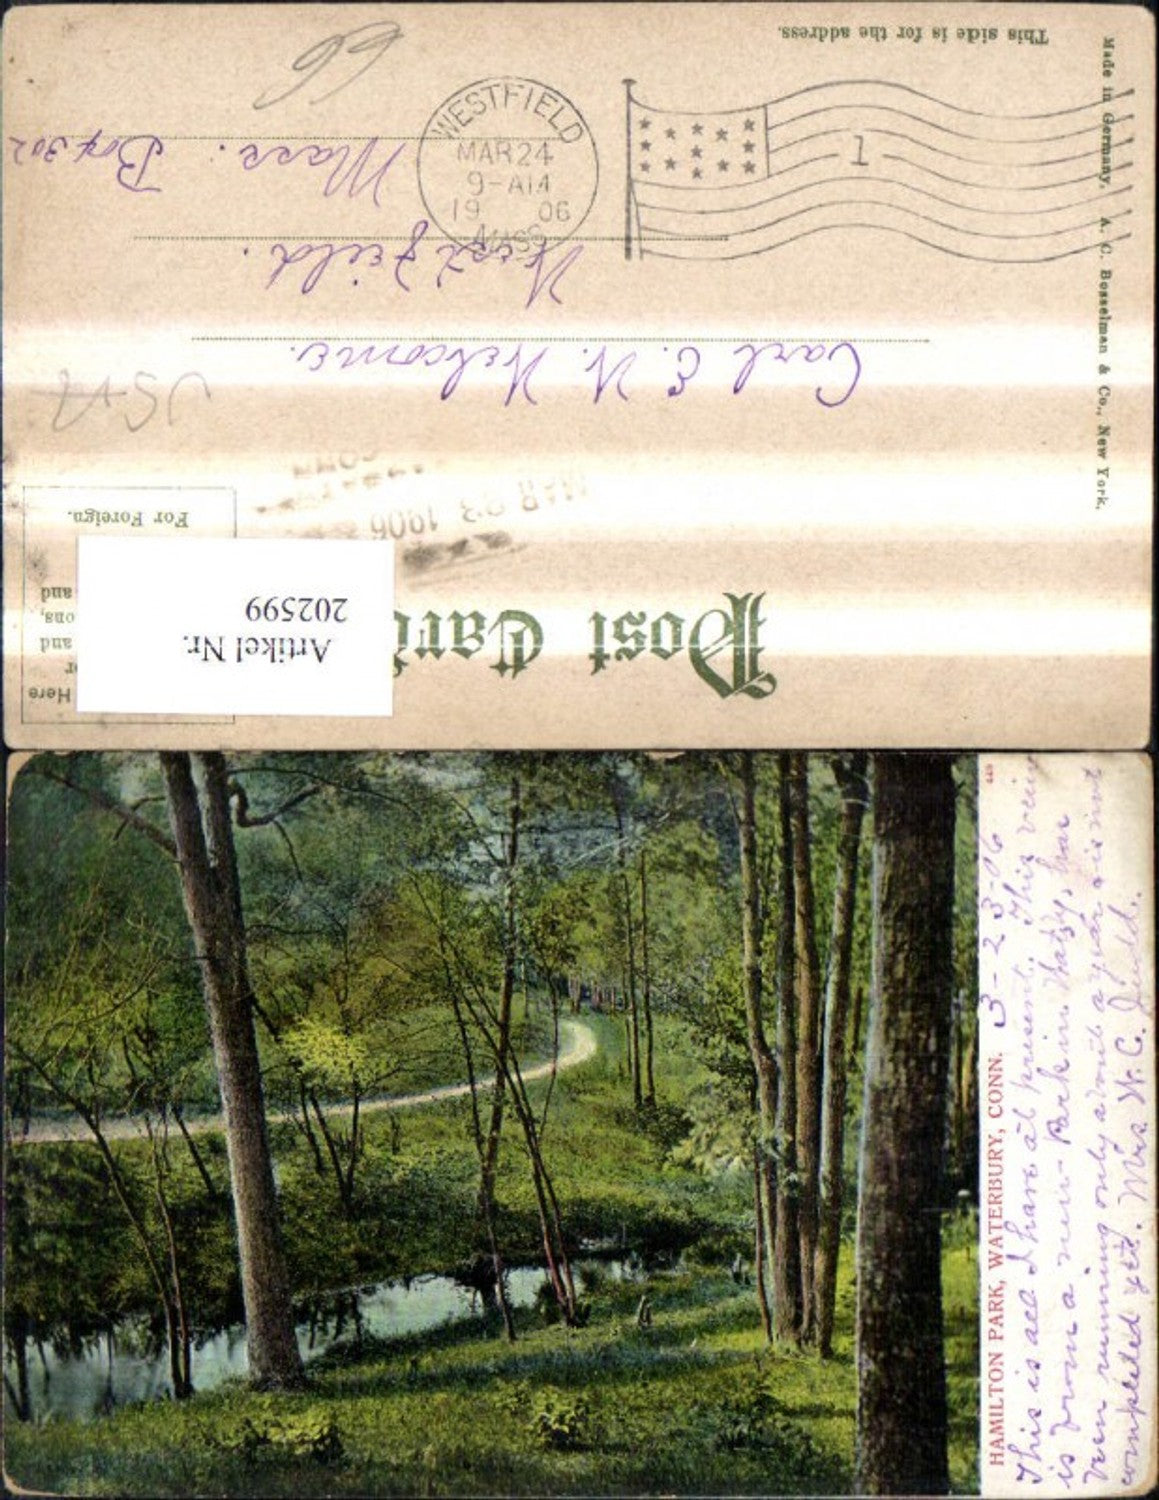 This side is for the address.
Made in Germany, A. C. Bosselman & Co., New York.
66
WESTFIELD
MAR 24
9-AM
19 06
MASS
1
Carl E. W. Welcome.
Westfield.
Mass. Box 302
USA
MAR 23 1906
CONN
Post Card
For Foreign.
Here
and
ons,
and
Artikel Nr.
202599
449
HAMILTON PARK, WATERBURY, CONN. 3-23-06
This is all I have at present. This view
is from a new Park in Watby, has
been running only about a year & is not
completed yet. Mrs W. C. Judd.